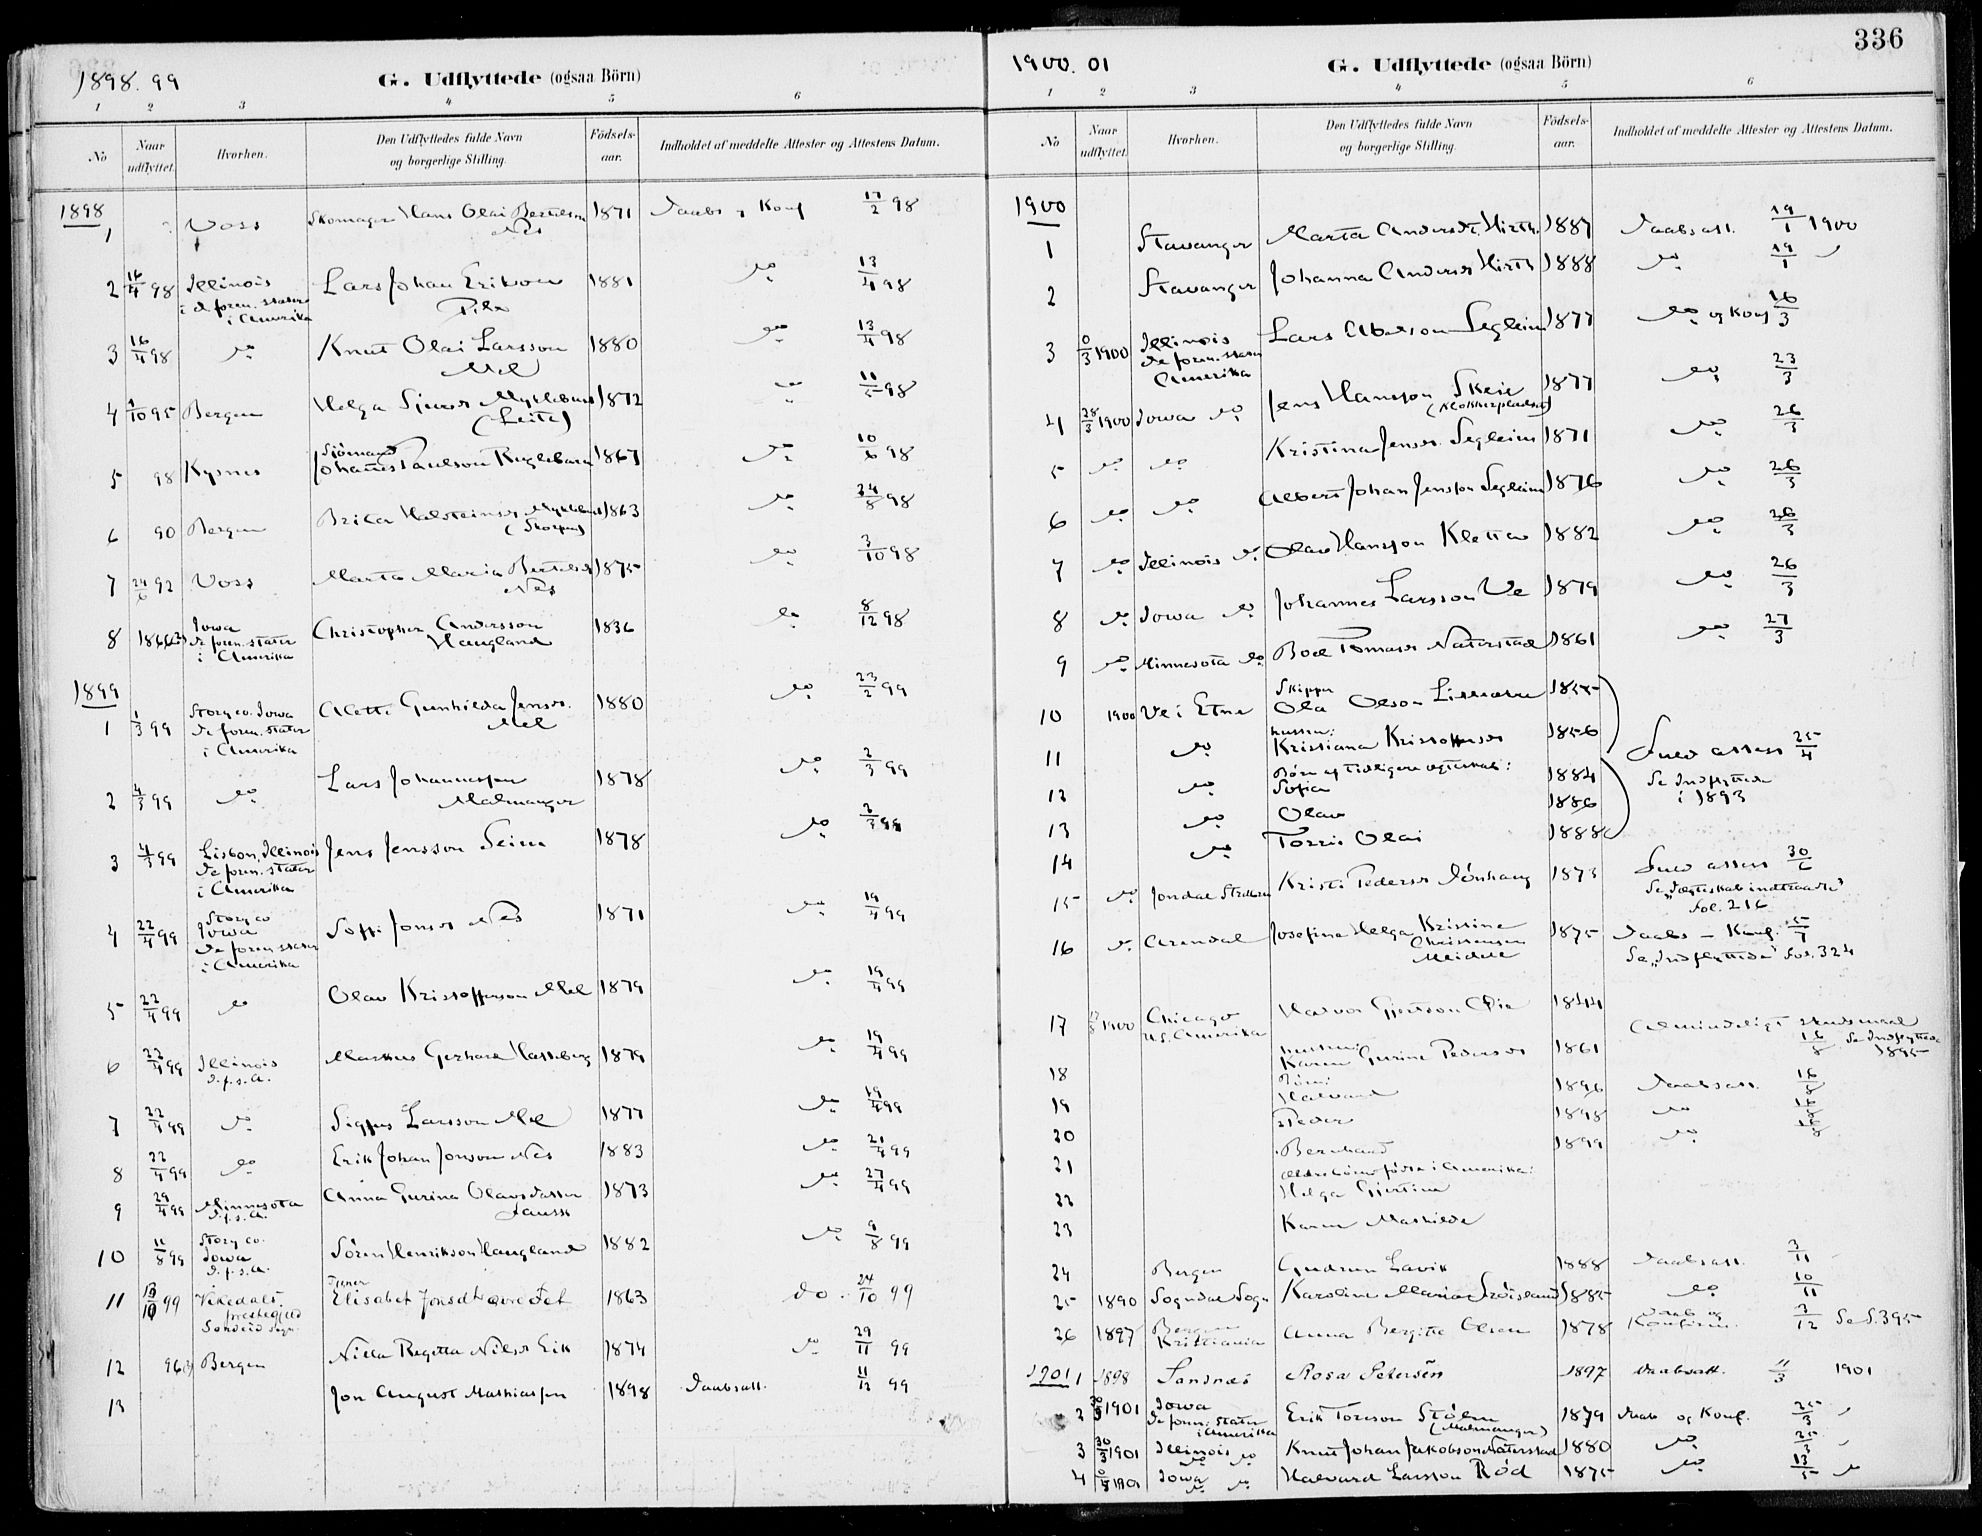 336
1898. 99
G. Udflyttede (ogsaa Börn)
1 2 3 4 5 6
No
Naar udflyttet.
Hvorhen.
Den Udflyttedes fulde Navn og borgerlige Stilling.
Födsels-aar.
Indholdet af meddelte Attester og Attestens Datum.
1898
1 Voss Skomager Hans Olai Bertelson 1871 Daabs og Konf 17/2 98
Nes
2 16/4 98 Illinois Lars Johan Erikson 1881 do 13/4 98
i d foren. stater
i Amerika
3 16/4 98 do Knut Olai Larsson 1880 do 13/4 98
Mel
4 1/10 95 Bergen Helga Sjursd Myklebust 1872 do 98
(Leite)
Sjömand
5 98 Johans Paulson 1867 do 10/6 98
6 90 Bergen Brita Halsteinsd 1863 do 24/8 98
7 24/6 92 Voss Marta Maria Bertelsd 1875 do 3/10 98
Nes
8 1866(?) Iowa Christopher Andersson 1836 do 8/12 98
de foren. stater Haugland
i Amerika
1899
1 1/3 99 Story co. Iowa Alette Gunhilda Jensd. 1880 do 23/2 99
de foren. stater Mel
i Amerika
2 4/3 99 do Lars Johannessen 1878 do 2/3 99
Malmanger
3 4/3 99 Lisbon, Illinois Jens Jensson Seim 1878 do 2/3 99
de foren. stater
i Amerika
4 22/4 99 Story co Soffi Jonsd Nes 1871 do 19/4 99
Iowa
de foren stater
i Amerika
5 22/4 99 do Olav Kristofferson Mel 1879 do 19/4 99
6 22/4 99 Illinois Markus Gerhard Hasseberg 1879 do 19/4 99
d. f. s. A.
7 22/4 99 do Sigfus Larsson Mel 1877 do 19/4 99
8 22/4 99 do Erik Johan Jonson Nes 1883 do 21/4 99
9 29/4 99 Minnesota Anna Gurina Olavsdatter 1873 do 27/4 99
d. f. s. A.
10 11/8 99 Story co. Sören Henrikson Haugland 1882 do 9/8 99
Iowa
d. f. s. A.
Tjener
11 99 Vikedals Elisabet Jonsd 1863 do. 24/10 99
prestegjeld
Sandeid sogn.
12 96(?) Bergen Nilla Regitta Nilsd Eik 1874 do 29/11 99
13 Jon August Mathiasson 1898 Daabsatt. 11/12 99
1900. 01
G. Udflyttede (ogsaa Börn)
1 2 3 4 5 6
No
Naar udflyttet.
Hvorhen.
Den Udflyttedes fulde Navn og borgerlige Stilling.
Födsels-aar.
Indholdet af meddelte Attester og Attestens Datum.
1900
1 Stavanger Marta Andersdt. Hirth. 1887 Daabsatt. 19/1 1900
2 Stavanger Johanna Andersd Hirth 1888 do 19/1
3 0/3 1900 Illinois Lars Abelson Segleim 1877 do og Konf 16/3
de foren. stater
Amerika
4 28/3 1900 Iowa do Jens Hansson Skeie 1877 do 23/3
(Klokkerpladset)
5 do do Kristina Jensd. Segleim 1871 do 26/3
6 do do Albert Johan Jensson Segleim 1876 do 26/3
7 do Illinois do Olav Hansson Kletta 1882 do 26/3
8 do Iowa do Johannes Larsson Ve 1879 do 26/3
9 do Minnesota do Boel Tomasd Naterstad 1861 do 27/3
Skipper
10 1900 Ve i Etne Ola Olson 1855
hustru:
11 do Kristiana Kristoffersd 1856 Bevis attest 25/4
Börn af tidligere ægteskab: Se Indflyttede
12 do Sofia 1884 i 1893
13 do Olav 1886
14 do Torris Olai 1888
15 do Jondal Kristi Pedersd 1873 30/6
Se "Ægteskab indtraadte"
fol. 216
16 do. Arendal Josefine Helga Kristine 1875 Daabs - Konf. 5/7
Christensen Se "Indflyttede" fol. 324
Meidell
17 1900 Chicago Halvor Gjertson Øie 1844
U.S. Amerika Almindeligt skudsmaal
hustru: 16/8 Se Indflyttede
18 Karen Gurine Pedersd 1861 1895
Börn:
19 Halvard 1896 Daabsatt. 16/8
20 Peder 1898 do 16/8
21 Bernhard 1899 do 16/8
Ældre börn födte i Amerika:
22 Helga Gjertine
23 Karen Mathilde
24 Bergen Gudrun Lavik 1888 Daabsatt. 3/11
25 1890 Sogndal Sogn Karoline Maria 1885 do 10/11
26 1897 Bergen Anna Bergitte Olsen 1878 Daab og 3/12 Se S. 395
Kristiania Konfirm.
1901
1 1898 Sandnes Rosa Petersen 1897 Daabsatt. 11/3 1901
2 1901 Iowa Erik Torsson Stölen 1879 Daab og Konf. 25/3
de foren: stater (Malmanger)
i Amerika
3 30/3 1901 Illinois do Knut Johan Jakobson Naterstad 1880 do 25/3
4 1901 Iowa Halvard Larsson Röd 1875 do 13/5